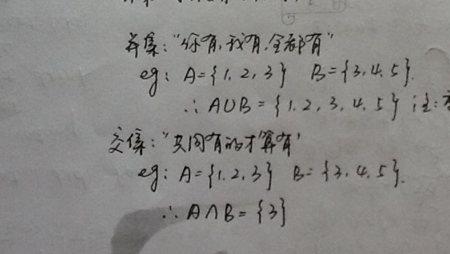 并集："你有,我有,全都有"
eg: A={1,2,3} B={3,4,5}.
∴A∪B={1,2,3,4,5} 注:
交集："共同有的才算有"
eg: A={1,2,3} B={3,4,5}.
∴A∩B={3}